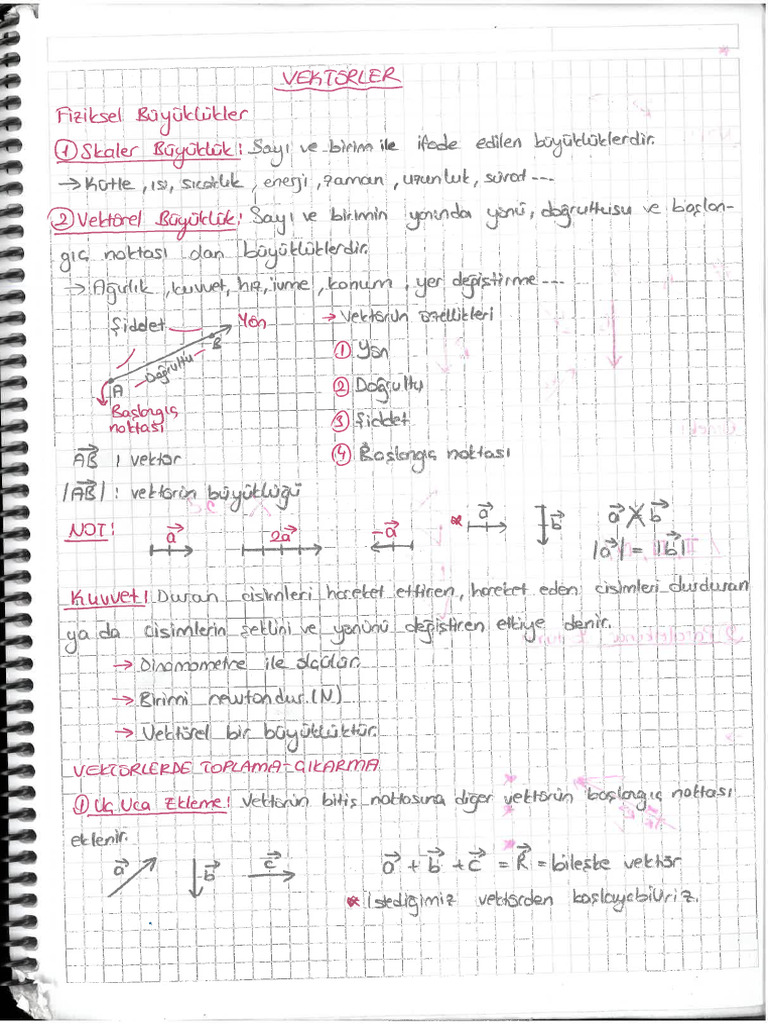 VEKTÖRLER
Fiziksel Büyüklükler
① Skaler Büyüklük: Sayı ve birim ile ifade edilen büyüklüklerdir.
→ Kütle, ısı, sıcaklık, enerji, zaman, uzunluk, sürat ---
② Vektörel Büyüklük: Sayı ve birimin yanında yönü, doğrultusu ve başlan-
gıç noktası olan büyüklüklerdir.
→ Ağırlık, kuvvet, hız, ivme, konum, yer değiştirme ---
Şiddet Yön
B
Doğrultu
A
Başlangıç
noktası
→ Vektörün özellikleri
① Yön
② Doğrultu
③ Şiddet
④ Başlangıç noktası
AB : vektör
|AB| : vektörün büyüklüğü
NOT: a 2a -a * a b a b
|a| = |b|
Kuvvet: Duran cisimleri hareket ettiren, hareket eden cisimleri durduran
ya da cisimlerin şeklini ve yönünü değiştiren etkiye denir.
→ Dinamometre ile ölçülür.
→ Birimi newtondur. (N)
→ Vektörel bir büyüklüktür.
VEKTÖRLERDE TOPLAMA-ÇIKARMA
① Uç Uca Ekleme: Vektörün bitiş noktasına diğer vektörün başlangıç noktası
eklenir.
a b c a + b + c = R = bileşke vektör
* İstediğimiz vektörden başlayabiliriz.